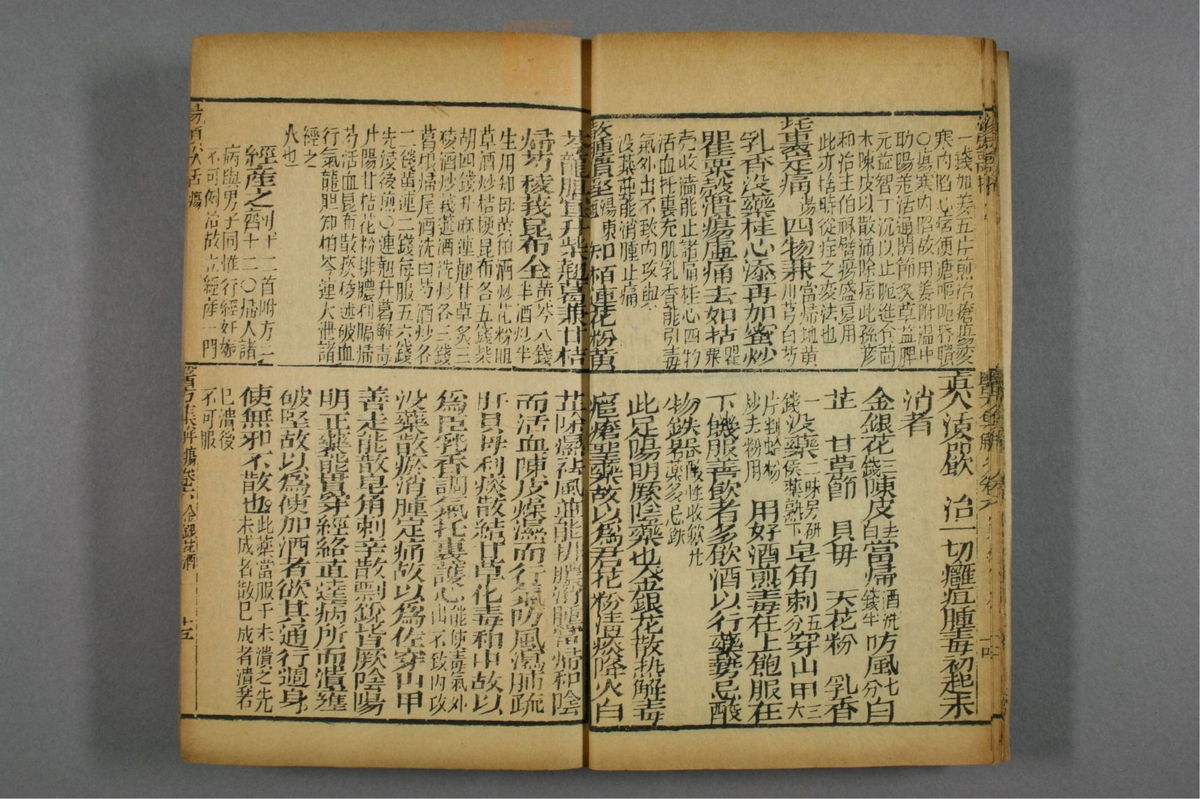 寒內陷心痞便溏嘔呃吞酸
〇瘍寒內陷故用姜附溫中
助陽羌活通關節炙草益脾
元益智丁沉以止呃進食苓
木陳皮以散滿除痞此孫彥
和治王伯祿臂瘍盛夏用
此亦捨時從症之變法也
托裏定痛湯四物兼當歸地黃川芎白芍
乳香没藥桂心添再加蜜炒
罌粟殼潰瘍虛痛去如拈罌粟
壳收濇能止諸痛桂心四物
活血托裏充肌乳香能引毒
氣外出不致內攻與
没藥並能消腫止痛
散腫潰堅湯東垣知栢連花粉黃
真人活命飲 治一切癰疽腫毒初起未
消者
金銀花三錢陳皮去白當歸酒洗錢半防風七分白
芷 甘草節 貝母 天花粉 乳香
一錢没藥二味另研候藥熟下皂角刺五分穿山甲三大
片剉蛤粉炒去粉用 用好酒煎毒在上飽服在
下饑服善飲者多飲酒以行藥勢忌酸
物鐵器酸性收歛凡藥多忌鉄
此足陽明厥陰藥也金銀花散熱解毒
癰瘡聖藥故以爲君花粉清痰降火白
芩龍膽宜升柴翹葛兼甘桔
歸芍稜莪昆布全黃芩八錢半酒炒半
生用知母黃柏酒炒花粉胆
草酒炒桔梗昆布各五錢柴
胡四錢升麻連翹甘草炙三
稜酒炒莪蒁酒洗炒各三錢
葛根歸尾酒洗白芍酒炒各
二錢黃連二錢每服五六錢
先浸後煎〇連翹升葛解毒
升陽甘桔花粉排膿利膈歸
芍活血昆布散痰稜莪破血
行氣龍胆知柏芩連大泄諸
經之
火也
經産之劑十二首附方二十一〇婦人諸
病與男子同惟行經妊娠
不可例治故立經産一門
芷除濕祛風並能排膿消腫當歸和陰
而活血陳皮燥濕而行氣防風瀉肺疏
肝貝母利痰散結甘草化毒和中故以
爲臣乳香調氣托裏護心能使毒氣外出不致內攻
没藥散瘀消腫定痛故以爲佐穿山甲
善走能散皂角刺辛散剽銳皆厥陰陽
明正藥能貫穿經絡直達病所而潰壅
破堅故以爲使加酒者欲其通行週身
使無邪不散也此藥當服于未潰之先未成者散已成者潰若
已潰後
不可服